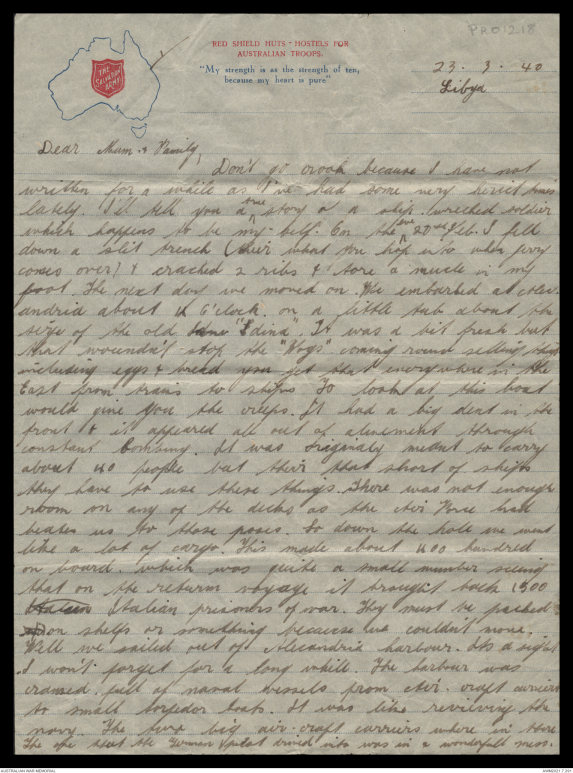 PRO1218
RED SHIELD HUTS - HOSTELS FOR
AUSTRALIAN TROOPS.
"My strength is as the strength of ten,
because my heart is pure"
THE
SALVATION
ARMY
23. 3. 40
Libya
Dear Mum & Family,
Don't go crook because I have not
written for a while as I've had some very hectic times
lately. I'll tell you a true story of a ship wrecked soldier
which happens to be my self. On the eve 20th Feb. I fell
down a slit trench (their what you hop into when jerry
comes over) & cracked 2 ribs & tore a muscle in my
foot. The next day we moved on. We embarked at Alex-
andria about 4 O'clock. on a little tub about the
size of the old "Edina". It was a bit fresh but
that wouldn't stop the "Wogs" coming round selling things
including eggs & bread you get that everywhere in the
East from trains to ships. To look at this boat
would give you the creeps. It had a big dent in its
front & it appeared all out of alinement through
constant bombing. It was originaly meant to carry
about 40 people but their that short of ships
they have to use these things. There was not enough
room on any of the decks as the Air Force had
beaten us to those poses. So down the hole we went
like a lot of cargo. This made about 400 hundred
on board. which was quite a small number seeing
that on the return voyage it brought back 1500
Italian prisoners of war. They must be packed
on shelfs or something because we couldn't move.
Well we sailed out of Alexandria harbour. Its a sight
I won't forget for a long while. The harbour was
cramed full of naval vessels from Air-craft carriers
to small torpedor boats. It was like reviewing the
navy. The two big air-craft carriers where in there
The one that the German pilot dived into was in a wonderfull mess.
AUSTRALIAN WAR MEMORIAL